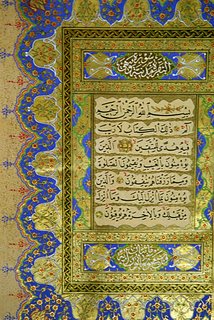 بِسْمِ اللهِ الرَّحْمٰنِ الرَّحِيمِ
الٓمٓ ذٰلِكَ الْكِتَابُ لَا رَيْبَ
فِيهِ هُدًى لِلْمُتَّقِينَ الَّذِينَ
يُؤْمِنُونَ بِالْغَيْبِ وَيُقِيمُونَ الصَّلٰوةَ
وَمِمَّا رَزَقْنَاهُمْ يُنْفِقُونَ وَالَّذِينَ
يُؤْمِنُونَ بِمَا أُنْزِلَ إِلَيْكَ وَمَا أُنْزِلَ
مِنْ قَبْلِكَ وَبِالْاٰخِرَةِ هُمْ يُوقِنُونَ